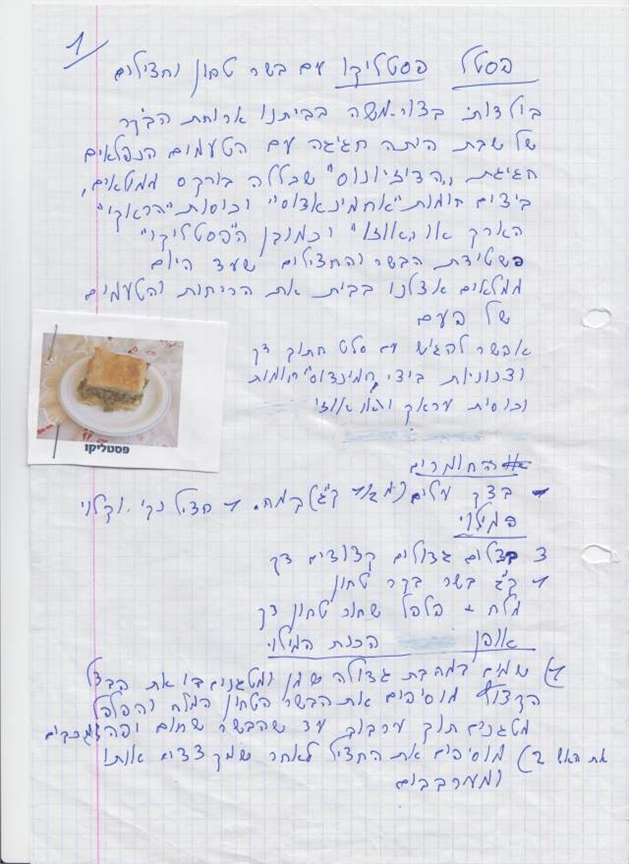 1
פסטל פסטליקו עם בשר טחון וחצילים
בילדותי בצור משה בביתנו ארוחת הבקר
של שבת היתה חגיגה עם הטעמים הנפלאים
חגיגת "הדיזיונוס" שכללה בורקס ממטאים,
ביצים חומות "אחמינאדוס" וכוסות "הראקי"
הארק או "אוזו" וכמובן ה"פסטליקו"
פשטידת הבשר והחצילים שעד היום
ממלאים אצלנו בבית את הריחות והטעמים
של פעם
אפשר להגיש עם סלט חתוך דק
וצנוניות ביצי חומות
וכוסית עראק
פסטליקו
החומרים
בצק עלים קמח. 1 חציל נקי וקלוי
המילוי
3 בצלים גדולים קצוצים דק
1 ק"ג בשר בקר טחון
מלח + פלפל שחור טחון דק
אופן הכנת המילוי
1) שמים במחבת גדולה שמן ומטגנים בו את הבצל
הקצוץ מוסיפים את הבשר הטחון המלח והפלפל
מטגנים תוך ערבוב עד שהבשר שחום
את האש 2) מוסיפים את החציל לאחר שמקצצים אותו
ומערבבים